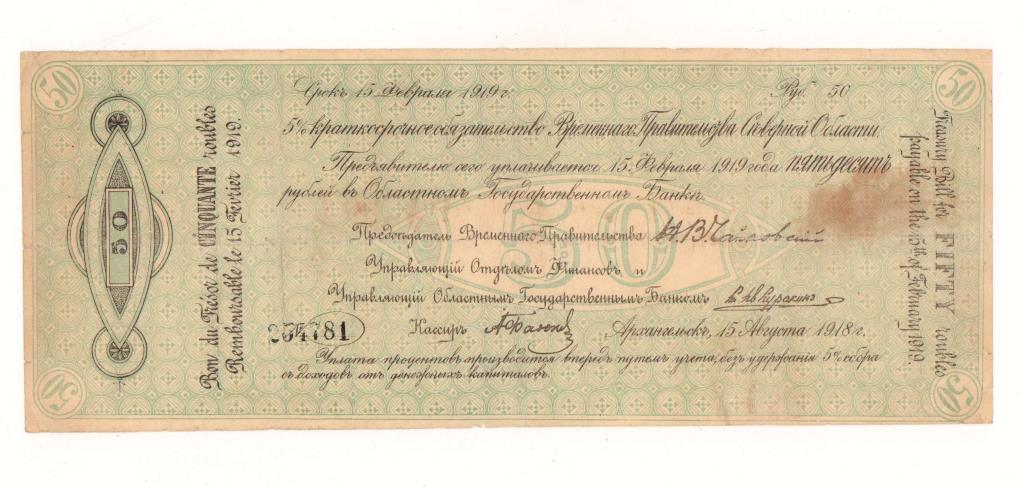 50
50
Срокъ 15 Февраля 1919 г.
Руб. 50
5% краткосрочное обязательство Временнаго Правительства Сѣверной Области.
Предъявителю сего уплачивается 15 Февраля 1919 года пятьдесятъ
рублей въ Областномъ Государственномъ Банкѣ.
50
Предсѣдатель Временнаго Правительства Н. В. Чайковский
Управляющій Отдѣломъ Финансовъ и
Управляющій Областнымъ Государственнымъ Банкомъ
254781
Кассиръ
Архангельскъ, 15 Августа 1918 г.
Уплата процентовъ производится впередъ путемъ учета, безъ удержанія 5% сбора
съ доходовъ отъ денежныхъ капиталовъ.
50
Bon du Trésor de CINQUANTE roubles
Remboursable le 15 Février 1919.
Treasury Bill for FIFTY roubles
payable on the 15th of February 1919
50
50